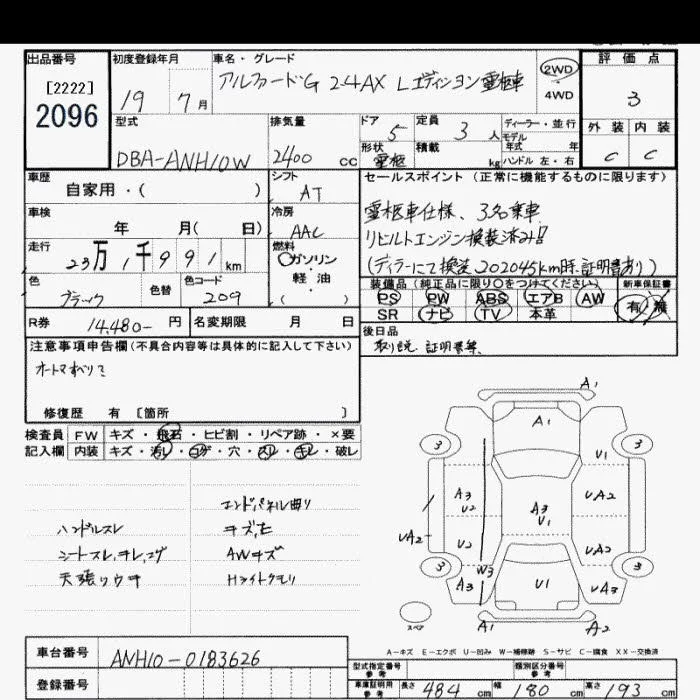 出品番号
[2222]
2096
初度登録年月
19 7月
車名・グレード
アルファードG 2.4AX Lエディション 霊柩車
2WD
4WD
評価点
3
外装 内装
C C
型式
DBA-ANH10W
排気量
2400 cc
ドア 5
定員 3 人
形状 霊柩
積載 kg
ディーラー・並行
モデル
年式 年
ハンドル 左・右
車歴
自家用・( )
シフト
AT
車検
年 月( 日)
冷房
AAC
走行
23万1千991km
燃料
ガソリン
軽・油
( )
色
ブラック
色替
色コード
209
R券 14,480- 円
名変期限 月 日
セールスポイント (正常に機能するものに限ります)
霊柩車仕様、3名乗車
リビルトエンジン換装済み!!
(ディラーにて換装 202045km時.証明書あり)
装備品(純正品に限り○をつけてください)
新車保証書
PS PW ABS エアB AW
SR ナビ TV 本革
有 無
後日品
取り説. 証明書等.
注意事項申告欄(不具合内容等は具体的に記入して下さい)
オートマすべりミ
修復歴 有 [箇所 ]
検査員
記入欄
FW キズ・飛石・ヒビ割・リペア跡・×要
内装 キズ・汚レ・コゲ・穴・スレ・キレ・破レ
エンドパネル曲り
ハンドルスレ
シートスレ,キレ,コゲ
AWキズ
天張りウキ
Hライトクモリ
A1
A1
3 3
U1
A3
U2
A3
U1
UA2
UA2
U2
UA2
3 3
W3
A3
U1
UA3
A1
A2
スペア
A-キズ E-エクボ U-凹み W-補修跡 S-サビ C-腐食 XX-交換済
車台番号
ANH10-0183626
登録番号
型式指定番号
参考
類別区分番号
参考
車庫証明用
参考
長さ 484 cm 幅 180 cm 高さ 193 cm